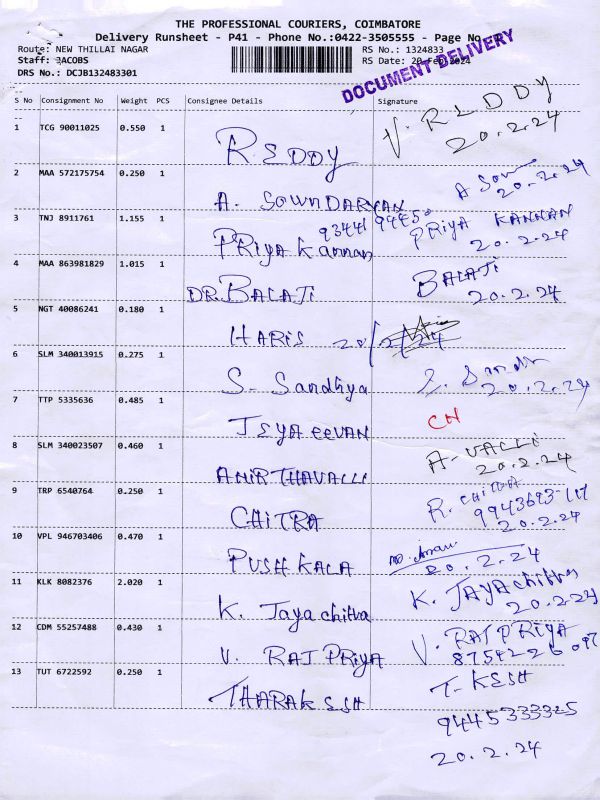 THE PROFESSIONAL COURIERS, COIMBATORE
Delivery Runsheet - P41 - Phone No.:0422-3505555 - Page No.:
Route: NEW THILLAI NAGAR RS No.: 1324833
Staff: JACOBS RS Date: 20-Feb-2024
DRS No.: DCJB132483301
DOCUMENT DELIVERY
S No Consignment No Weight PCS Consignee Details Signature
1 TCG 90011025 0.550 1 REDDY V. REDDY
20.2.24
2 MAA 572175754 0.250 1 A. SOWNDARYAN A Sow
20.2.24
3 TNJ 8911761 1.155 1 PRiyA kannan PRIYA KANNAN
20.2.24
4 MAA 863981829 1.015 1 DR.BALAJI BALAJI
20.2.24
5 NGT 40086241 0.180 1 HARIS 20/2/24
6 SLM 340013915 0.275 1 S. Sandhiya
20.2.24
7 TTP 5335636 0.485 1 JEYAJEEVAN CH
8 SLM 340023507 0.460 1 AMIRTHAVALLI A-VALLI
20.2.24
9 TRP 6540764 0.250 1 CHITRA R. CHITRA
20.2.24
10 VPL 946703406 0.470 1 PUSHKALA
20.2.24
11 KLK 8082376 2.020 1 K. Jayachitra K. JAYAchitra
20.2.24
12 CDM 55257488 0.430 1 V. RAJPRIYA V. RAJPRIYA
13 TUT 6722592 0.250 1 THARAKESH T-KESH
20.2.24